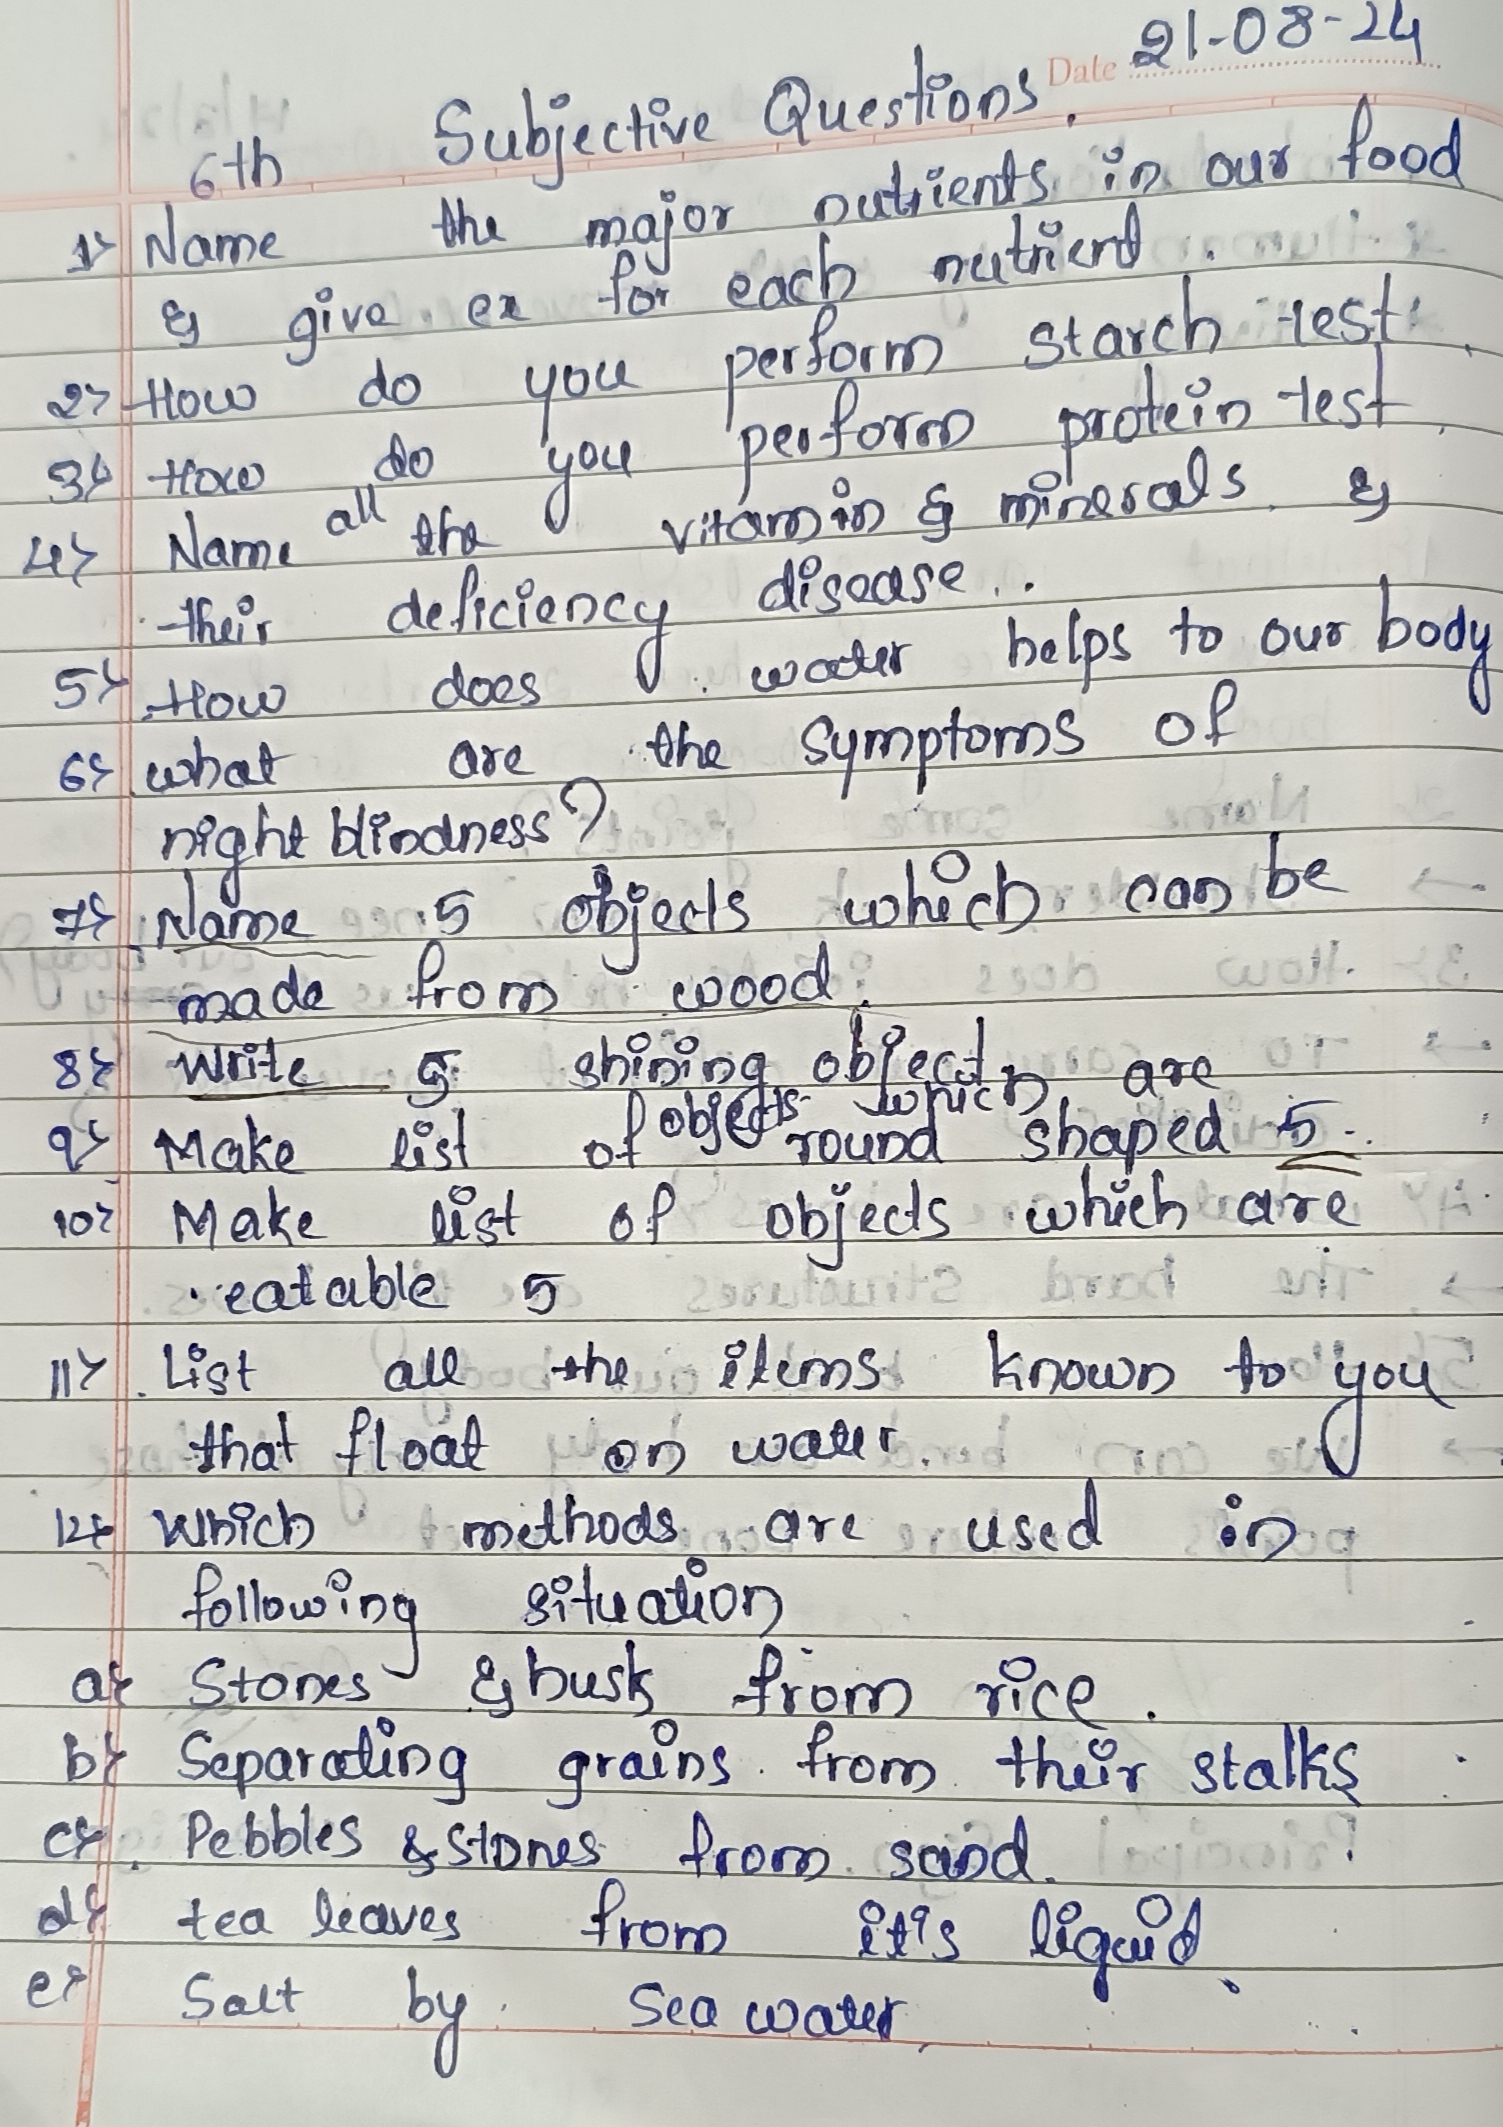 Date 21-08-24
6th Subjective Questions.
1> Name the major nutrients in our food
& give ex for each nutrient.
2> How do you perform starch test.
3> How do you perform protein test.
4> Name all the vitamin & minerals &
their deficiency disease.
5> How does water helps to our body
6> what are the symptoms of
night blindness?
7> Name 5 objects which can be
made from wood.
8> Write 5 shining object
9> Make list of objects which are round shaped 5.
10> Make list of objects which are
eatable 5
11> List all the items known to you
that float on water
12> Which methods are used in
following situation
a> Stones & husk from rice.
b> Separating grains from their stalks
c> Pebbles & stones from sand.
d> tea leaves from it's liquid.
e> Salt by Sea water.